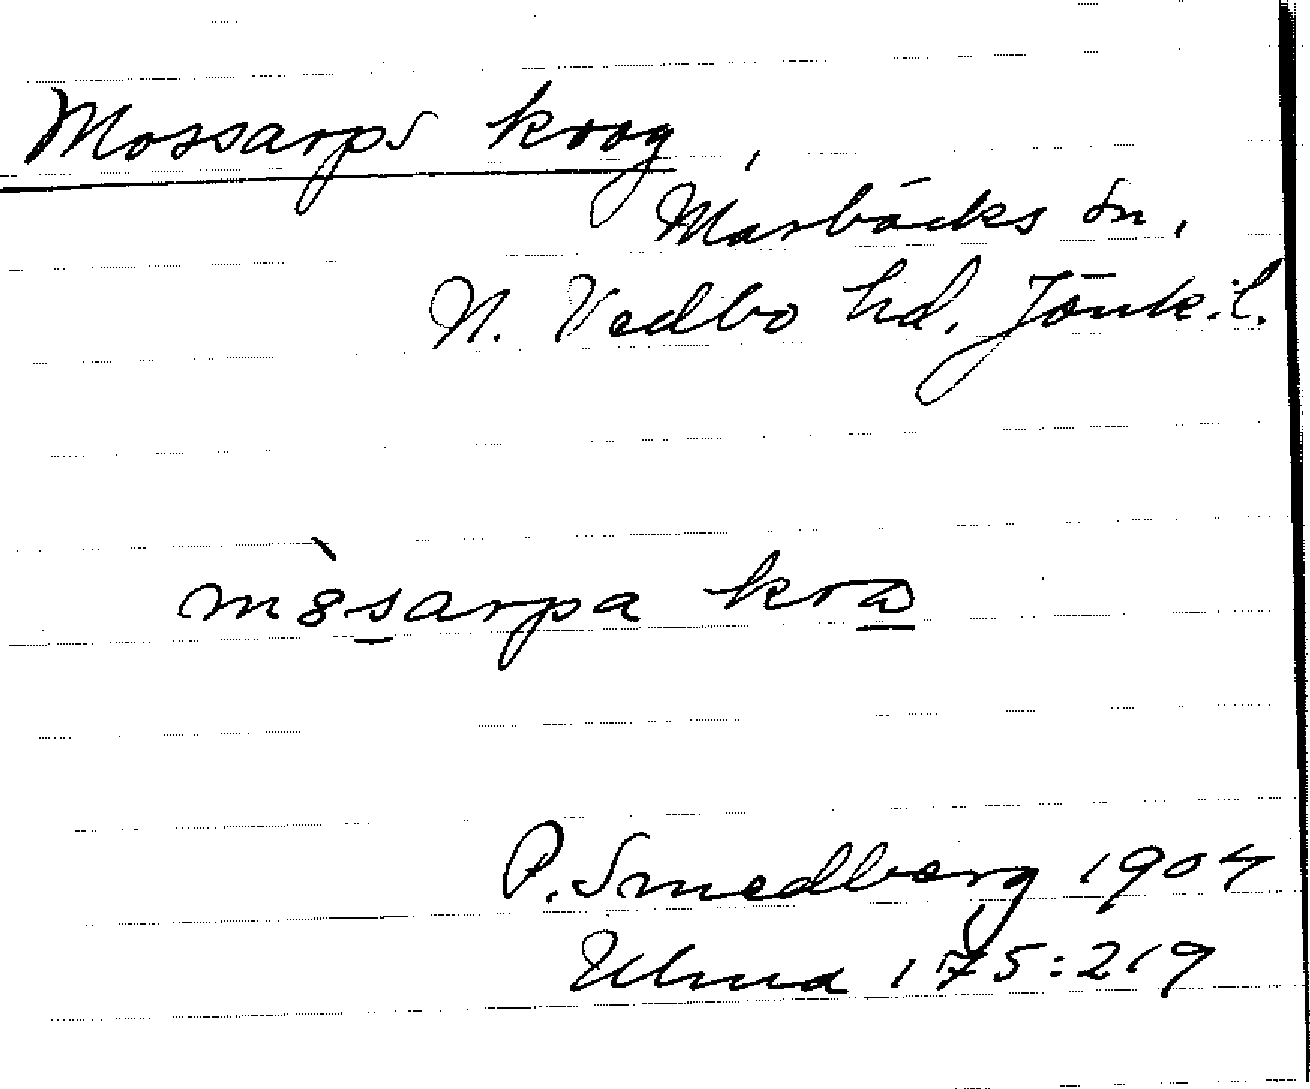 Mossarps kroog,
Marbäcks sn,
N. Vedbo hd. Jönk. l.
P. Smedberg 1904
Ulma 175:219